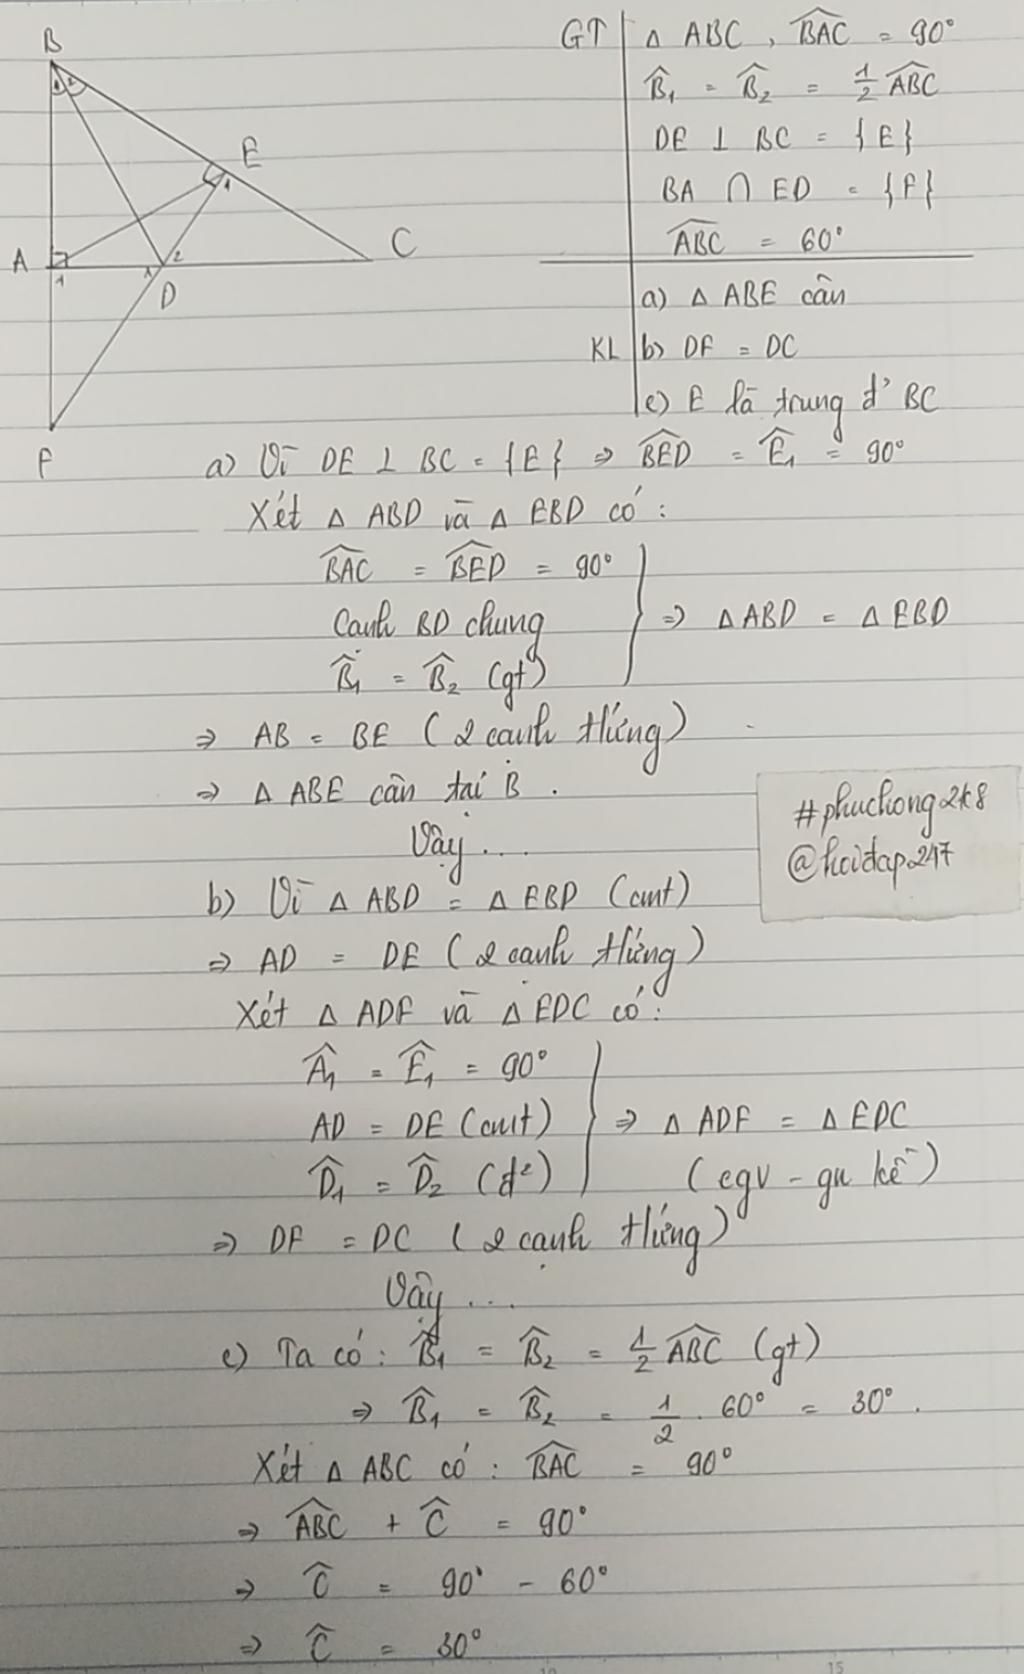 B
1 2
E
1
A
1
1
2
D
C
F
GT Δ ABC, \widehat{BAC} = 90°
B̂₁ = B̂₂ = 1/2 \widehat{ABC}
DE ⊥ BC = {E}
BA ∩ ED = {F}
\widehat{ABC} = 60°
a) Δ ABE cân
KL b) DF = DC
c) E là trung đ' BC
a) Vì DE ⊥ BC = {E} ⇒ \widehat{BED} = Ê₁ = 90°
Xét Δ ABD và Δ EBD có :
\widehat{BAC} = \widehat{BED} = 90°
Cạnh BD chung ⇒ Δ ABD = Δ EBD
B̂₁ = B̂₂ (gt)
⇒ AB = BE (2 cạnh tứng)
⇒ Δ ABE cân tại B.
Vậy ...
#phuchong2k8
@hoidap247
b) Vì Δ ABD = Δ EBD (cmt)
⇒ AD = DE (2 cạnh tứng)
Xét Δ ADF và Δ EDC có :
Â₁ = Ê₁ = 90°
AD = DE (cmt) ⇒ Δ ADF = Δ EDC
D̂₁ = D̂₂ (đ²) (cgv - gn kề)
⇒ DF = DC (2 cạnh tứng)
Vậy ...
c) Ta có : B̂₁ = B̂₂ = 1/2 \widehat{ABC} (gt)
⇒ B̂₁ = B̂₂ = 1/2 . 60° = 30° .
Xét Δ ABC có : \widehat{BAC} = 90°
⇒ \widehat{ABC} + Ĉ = 90°
⇒ Ĉ = 90° - 60°
⇒ Ĉ = 30°
15